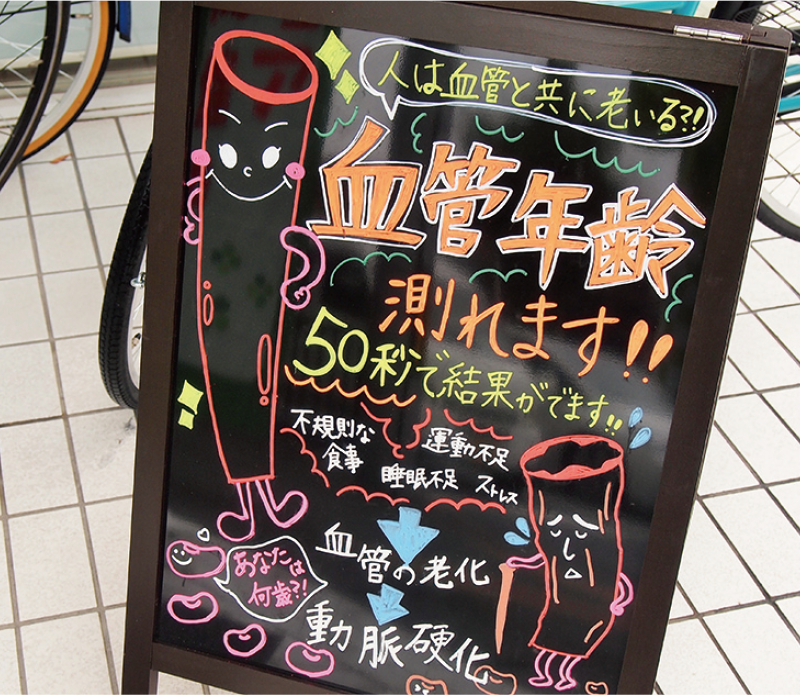 人は血管と共に老いる?!
血管年齢
測れます!!
50秒で結果がでます!!
不規則な
食事
運動不足
睡眠不足
ストレス
血管の老化
動脈硬化
あなたは
何歳?!